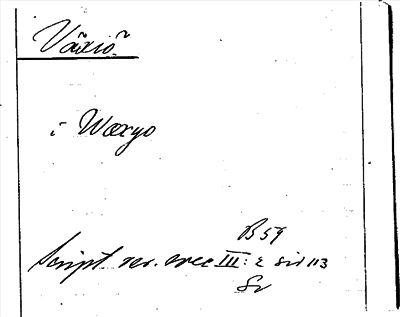 Växiö
i Wæxyo
B 59
Script. rer. svec III: 2 sid 113
Sv